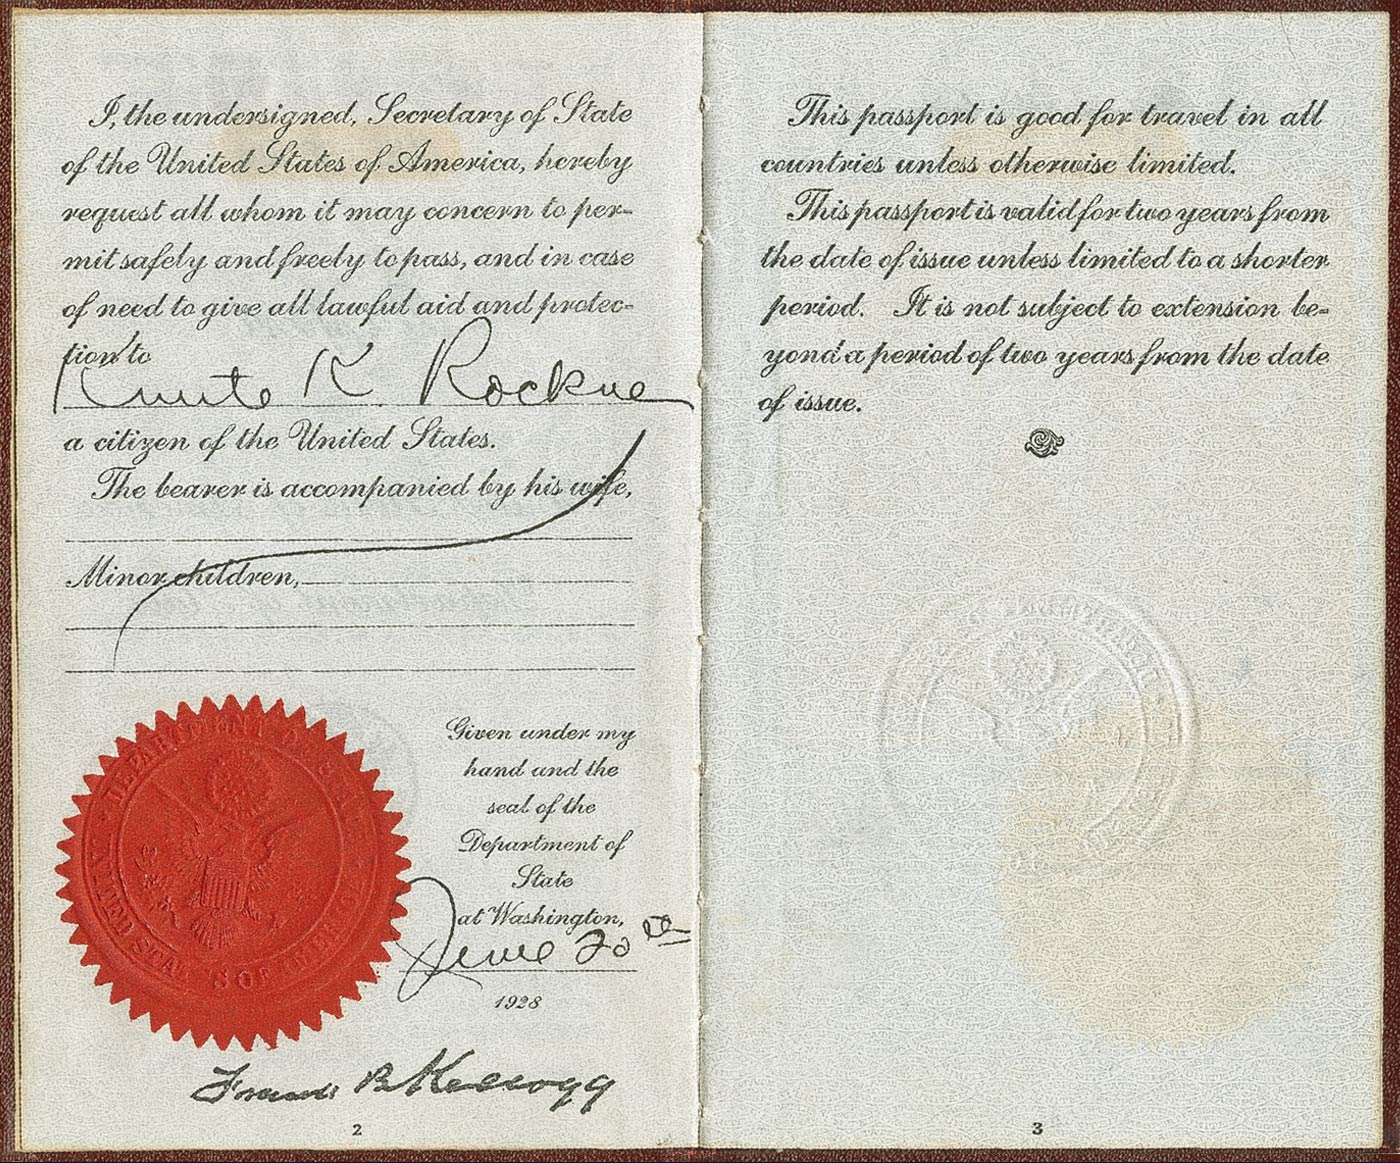 I, the undersigned, Secretary of State
of the United States of America, hereby
request all whom it may concern to per-
mit safely and freely to pass, and in case
of need to give all lawful aid and protec-
tion to
Knute K Rockne
a citizen of the United States.
The bearer is accompanied by his wife,
Minor children,
DEPARTMENT OF STATE
UNITED STATES OF AMERICA
Given under my
hand and the
seal of the
Department of
State
at Washington,
June 20th
1928
Frank B Kellogg
2
This passport is good for travel in all
countries unless otherwise limited.
This passport is valid for two years from
the date of issue unless limited to a shorter
period. It is not subject to extension be-
yond a period of two years from the date
of issue.
3